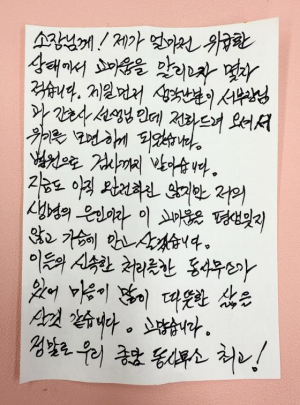 소장님께! 제가 얼마전 위급한
상태에서 고마움을 알리고자 몇자
적습니다. 제일먼저 생각난분이 서부장님
과 간호사 선생님인데 전화드려 오셔서
위기를 모면하게 되었습니다.
병원으로 검사까지 받았습니다.
지금도 아직 완전하진 않지만 저의
생명의 은인이자 이 고마움을 평생잊지
않고 가슴에 안고 살겠습니다.
이들의 신속한 처리를한 동사무소가
있어 마음이 많이 따뜻한 삶을
산것 같습니다. 고맙습니다.
정말로 우리 동사무소 최고!